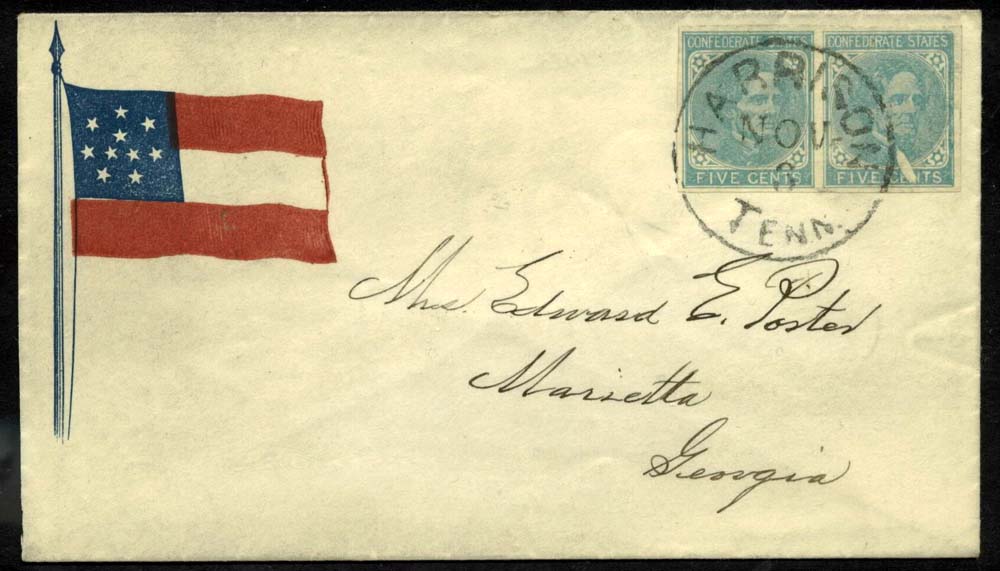 CONFEDERATE STATES
CONFEDERATE STATES
HARRISON
NOV
8
TENN.
FIVE CENTS
FIVE CENTS
Mrs. Edward E. Porter
Marietta
Georgia